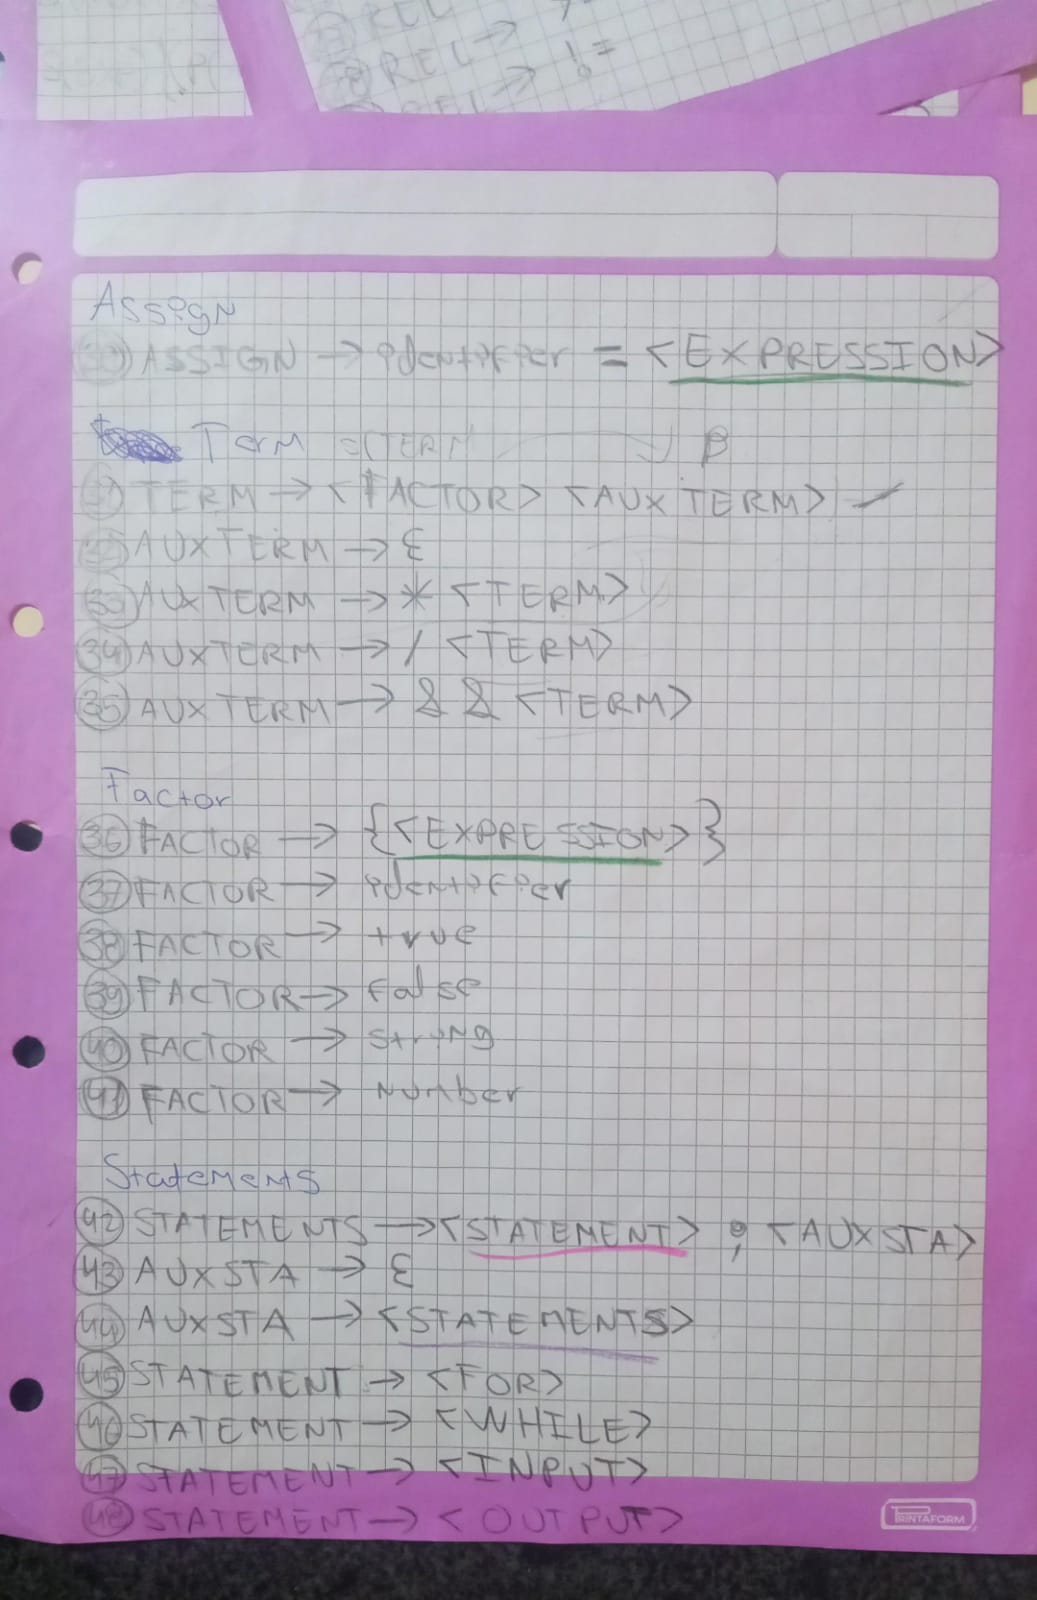 REL
REL →
REL → !=
Assign
30 ASSIGN → identifier = <EXPRESSION>
Term
TERM → <FACTOR> <AUX TERM>
32 AUXTERM → ε
33 AUXTERM → * <TERM>
34 AUXTERM → / <TERM>
35 AUXTERM → && <TERM>
Factor
36 FACTOR → {<EXPRESSION>}
37 FACTOR → identifier
38 FACTOR → true
39 FACTOR → false
40 FACTOR → string
41 FACTOR → number
Statements
42 STATEMENTS → <STATEMENT> ; <AUXSTA>
43 AUXSTA → ε
44 AUXSTA → <STATEMENTS>
45 STATEMENT → <FOR>
46 STATEMENT → <WHILE>
47 STATEMENT → <INPUT>
48 STATEMENT → <OUTPUT>
PRINTAFORM